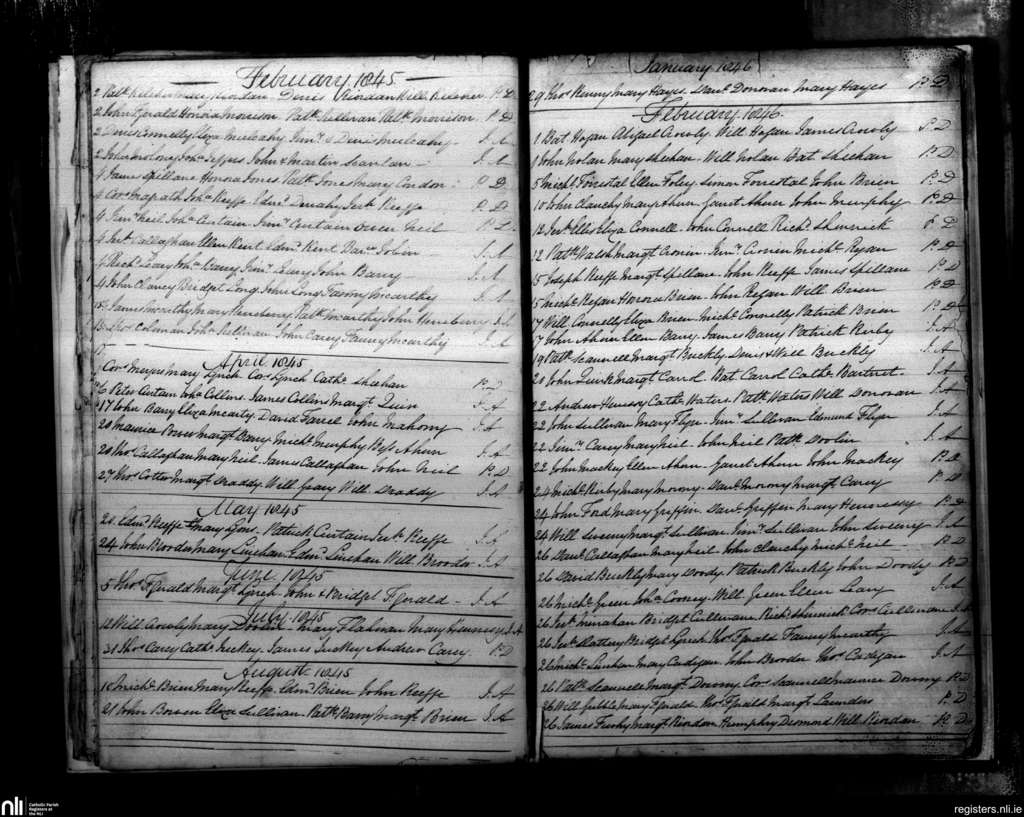 February 1845
2 Patk Relihan Mary Riordan Denis Riordan Will
2 John Fgerald Honora Morrison Patk Sullivan Patk Morrison P. D
2 Denis Connelly Eliza Mulcahy Jimy & Denis Mulcahy J. A
2 John Molony Joha John & Martin Scanlan J. A
4 James Spillane Honora Jones Patk Jones Mary Condon P. D
4 Cors Magrath Joha Keeffe Edmd Denahy Jerh Keeffe P. D
4 Jimy Neil Joha Curtain Jimy Curtain Owen Neil P. D
4 Jerh Callaghan Ellen Kent Edmd Kent Danl Tobin J. A
4 Richd Leary Joha Barry Jimy Leary John Barry J. A
4 John Clancy Bridget Long John Long Fanny McCarthy J. A
James McCarthy Mary Henebery Patk McCarthy John Henebery J. A
Thos Colman Joha Sullivan John Carey Fanny McCarthy J. A
April 1845
Cors Meyers Mary Lynch Cors Lynch Cathe Sheehan P. D
6 Peter Curtain Joha Collins James Collins Margt Quin J. A
17 John Barry Eliza McCarty David Farrel John Mahony J. A
20 Maurice Brien Margt Barry Michl Murphy Bess Ahern J. A
20 Thos Callaghan Mary Neil James Callaghan John Neil P. D
27 Thos Cotter Margt Draddy Will Gray Will Draddy J. A
May 1845
20 Edmd Keeffe Mary Lyons Patrick Curtain Jerh Keeffe J. A
24 John Broder Mary Linehan Edmd Linehan Will Broder J. A
June 1845
5 Thos Fgerald Margt Lynch John & Bridget Fgerald J. A
July 1845
12 Will Crowly Mary Mary Flahavan Mary Hennessy J. A
31 Thos Carey Cathe Tuckey James Tuckey Andrew Carey P. D
August 1845
10 Michl Brien Mary Keeffe Edmd Brien John Keeffe J. A
21 John Bowen Eliza Sullivan Patk Barry Margt Brien J. A
January 1846
29 Thos Kenny Mary Hayes Danl Donovan Mary Hayes P. D
February 1846
1 Bat Hogan Abigal Crowly Will Hogan James Crowly P. D
1 John Nolan Mary Sheehan Will Nolan Bat Sheehan P. D
5 Michl Forrestal Ellen Foley Simon Forrestal John Brien P. D
10 John Clanchy Mary Ahern Garret Ahern John Murphy P. D
12 Jerh Ellis Eliza Connell John Connell Richd Shinnick P. D
12 Patk Walsh Margt Cronin Jimy Cronin Michl Ryan P. D
15 Joseph Keeffe Margt Spillane John Keeffe James Spillane P. D
15 Michl Regan Honora Brien John Regan Will Brien P. D
17 Will Connelly Eliza Brien Michl Connelly Patrick Brien P. D
17 John Ahern Ellen Barry James Barry Patrick Kirby J. A
19 Patk Scannell Margt Buckly Denis & Will Buckly J. A
20 John Quirk Margt Carrol Bat Carrol Cathe Bartnet J. A
22 Andrew Hennessy Cathe Waters Patk Waters Will Donovan J. A
22 John Sullivan Mary Flyn Jimy Sullivan Edmund Flyn J. A
22 Jimy Carey Mary Neil John Neil Patk Doolin J. A
22 John Mackey Ellen Ahern Garret Ahern John Mackey P. D
24 Michl Kirby Mary Morony Danl Morony Margt Carey P. D
24 John Ford Mary Griffin Danl Griffin Mary Hennessy P. D
24 Will Sweeny Margt Sullivan Jimy Sullivan John Sweeny J. A
26 Danl Callaghan Mary Neil John Clanchy Michl Neil P. D
26 David Buckly Mary Doody Patrick Buckly John Doody P. D
26 Michl Green Joha Cooney Will Green Ellen Leary J. A
26 Jerh Minahan Bridget Cullinane Richd Shinnick Cors Cullinane J. A
26 Jerh Slattery Bridget Lynch Thos Fgerald Fanny McCarthy J. A
26 Michl Linehan Mary Cadigan John Broder Thos Cadigan J. A
26 Patk Scannell Margt Downy Cors Scannell Maurice Downy P. D
26 Will Mary Fgerald Thos Fgerald Margt Saunders P. D
26 James Twohy Margt Riordan Humphry Desmond Will Riordan P. D
nli
Catholic Parish
Registers at
the NLI
registers.nli.ie